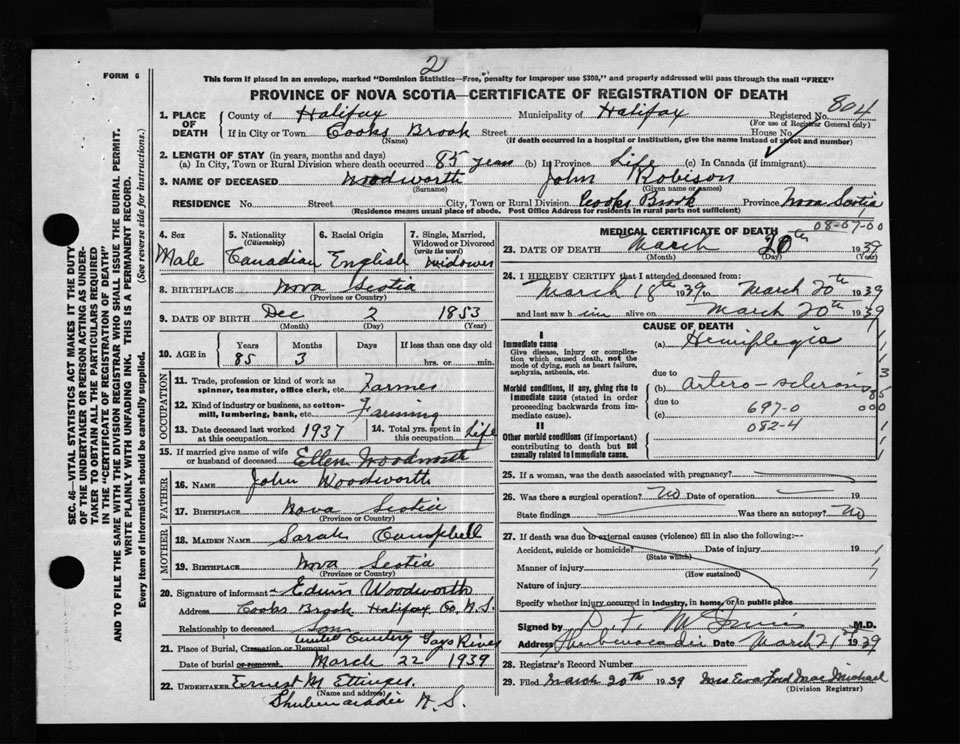 2
FORM 6
This form if placed in an envelope, marked "Dominion Statistics—Free, penalty for improper use $300," and properly addressed will pass through the mail "FREE"
PROVINCE OF NOVA SCOTIA—CERTIFICATE OF REGISTRATION OF DEATH
804
1. PLACE OF DEATH { County of Halifax Municipality of Halifax Registered No.
(For use of Registrar General only)
If in City or Town Cooks Brook Street House No.
(Name) (If death occurred in a hospital or institution, give the name instead of street and number)
2. LENGTH OF STAY (in years, months and days)
(a) In City, Town or Rural Division where death occurred 85 years (b) In Province Life (c) In Canada (if immigrant)
3. NAME OF DECEASED Woodworth John Robison
(Surname) (Given name or names)
RESIDENCE No. Street City, Town or Rural Division Cooks Brook Province Nova Scotia
(Residence means usual place of abode. Post Office Address for residents in rural parts not sufficient)
SEC. 46—VITAL STATISTICS ACT MAKES IT THE DUTY
OF THE UNDERTAKER OR PERSON ACTING AS UNDER-
TAKER TO OBTAIN ALL THE PARTICULARS REQUIRED
IN THE "CERTIFICATE OF REGISTRATION OF DEATH"
AND TO FILE THE SAME WITH THE DIVISION REGISTRAR WHO SHALL ISSUE THE BURIAL PERMIT.
WRITE PLAINLY WITH UNFADING INK. THIS IS A PERMANENT RECORD.
Every item of information should be carefully supplied. (See reverse side for instructions.)
4. Sex
Male
5. Nationality
(Citizenship)
Canadian
6. Racial Origin
English
7. Single, Married, Widowed or Divorced
(write the word)
Widower
8. BIRTHPLACE Nova Scotia
(Province or Country)
9. DATE OF BIRTH Dec 2 1853
(Month) (Day) (Year)
10. AGE in { Years Months Days If less than one day old
85 3 hrs. or min.
OCCUPATION
11. Trade, profession or kind of work as
spinner, teamster, office clerk, etc. Farmer
12. Kind of industry or business, as cotton-
mill, lumbering, bank, etc. Farming
13. Date deceased last worked at this occupation 1937
14. Total yrs. spent in this occupation Life
15. If married give name of wife
or husband of deceased Ellen Woodworth
FATHER
16. NAME John Woodworth
17. BIRTHPLACE Nova Scotia
(Province or Country)
MOTHER
18. MAIDEN NAME Sarah Campbell
19. BIRTHPLACE Nova Scotia
(Province or Country)
20. Signature of informant Edwin Woodworth
Address Cooks Brook Halifax Co. N.S.
Relationship to deceased Son
21. Place of Burial, Cremation or Removal United Cemetery Gays River
Date of burial or removal March 22 1939
22. UNDERTAKER Ernest M Ettinger
(Name and address)
Shubenacadie N.S.
MEDICAL CERTIFICATE OF DEATH 08-07-00
23. DATE OF DEATH March 20th 1939
(Month) (Day) (Year)
24. I HEREBY CERTIFY that I attended deceased from:
March 18th 1939 to March 20th 1939
and last saw him alive on March 20th 1939
CAUSE OF DEATH
I
Immediate cause
Give disease, injury or complica-
tion which caused death, not the
mode of dying, such as heart failure,
asphyxia, asthenia, etc.
(a) Hemiplegia
due to
Morbid conditions, if any, giving rise to
immediate cause (stated in order
proceeding backwards from im-
mediate cause).
(b) artero-sclerosis
due to
(c) 697-0
082-4
II
Other morbid conditions (if important)
contributing to death but not
causally related to immediate cause.
25. If a woman, was the death associated with pregnancy?
26. Was there a surgical operation? No Date of operation 19
State findings Was there an autopsy? No
27. If death was due to external causes (violence) fill in also the following:—
Accident, suicide or homicide? Date of injury 19
(State which)
Manner of injury
(How sustained)
Nature of injury
Specify whether injury occurred in industry, in home, or in public place
Signed by M.D.
Address Shubenacadie Date March 21st 1939
28. Registrar's Record Number
29. Filed March 20th 1939 Mrs Eva Ford MacMichael
(Division Registrar)